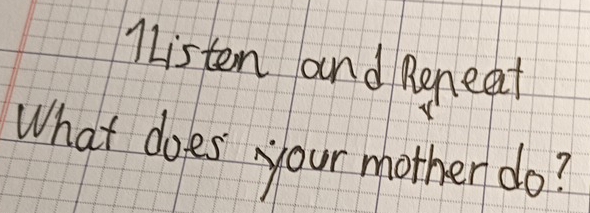 1 Listen and Repeat
What does your mother do?